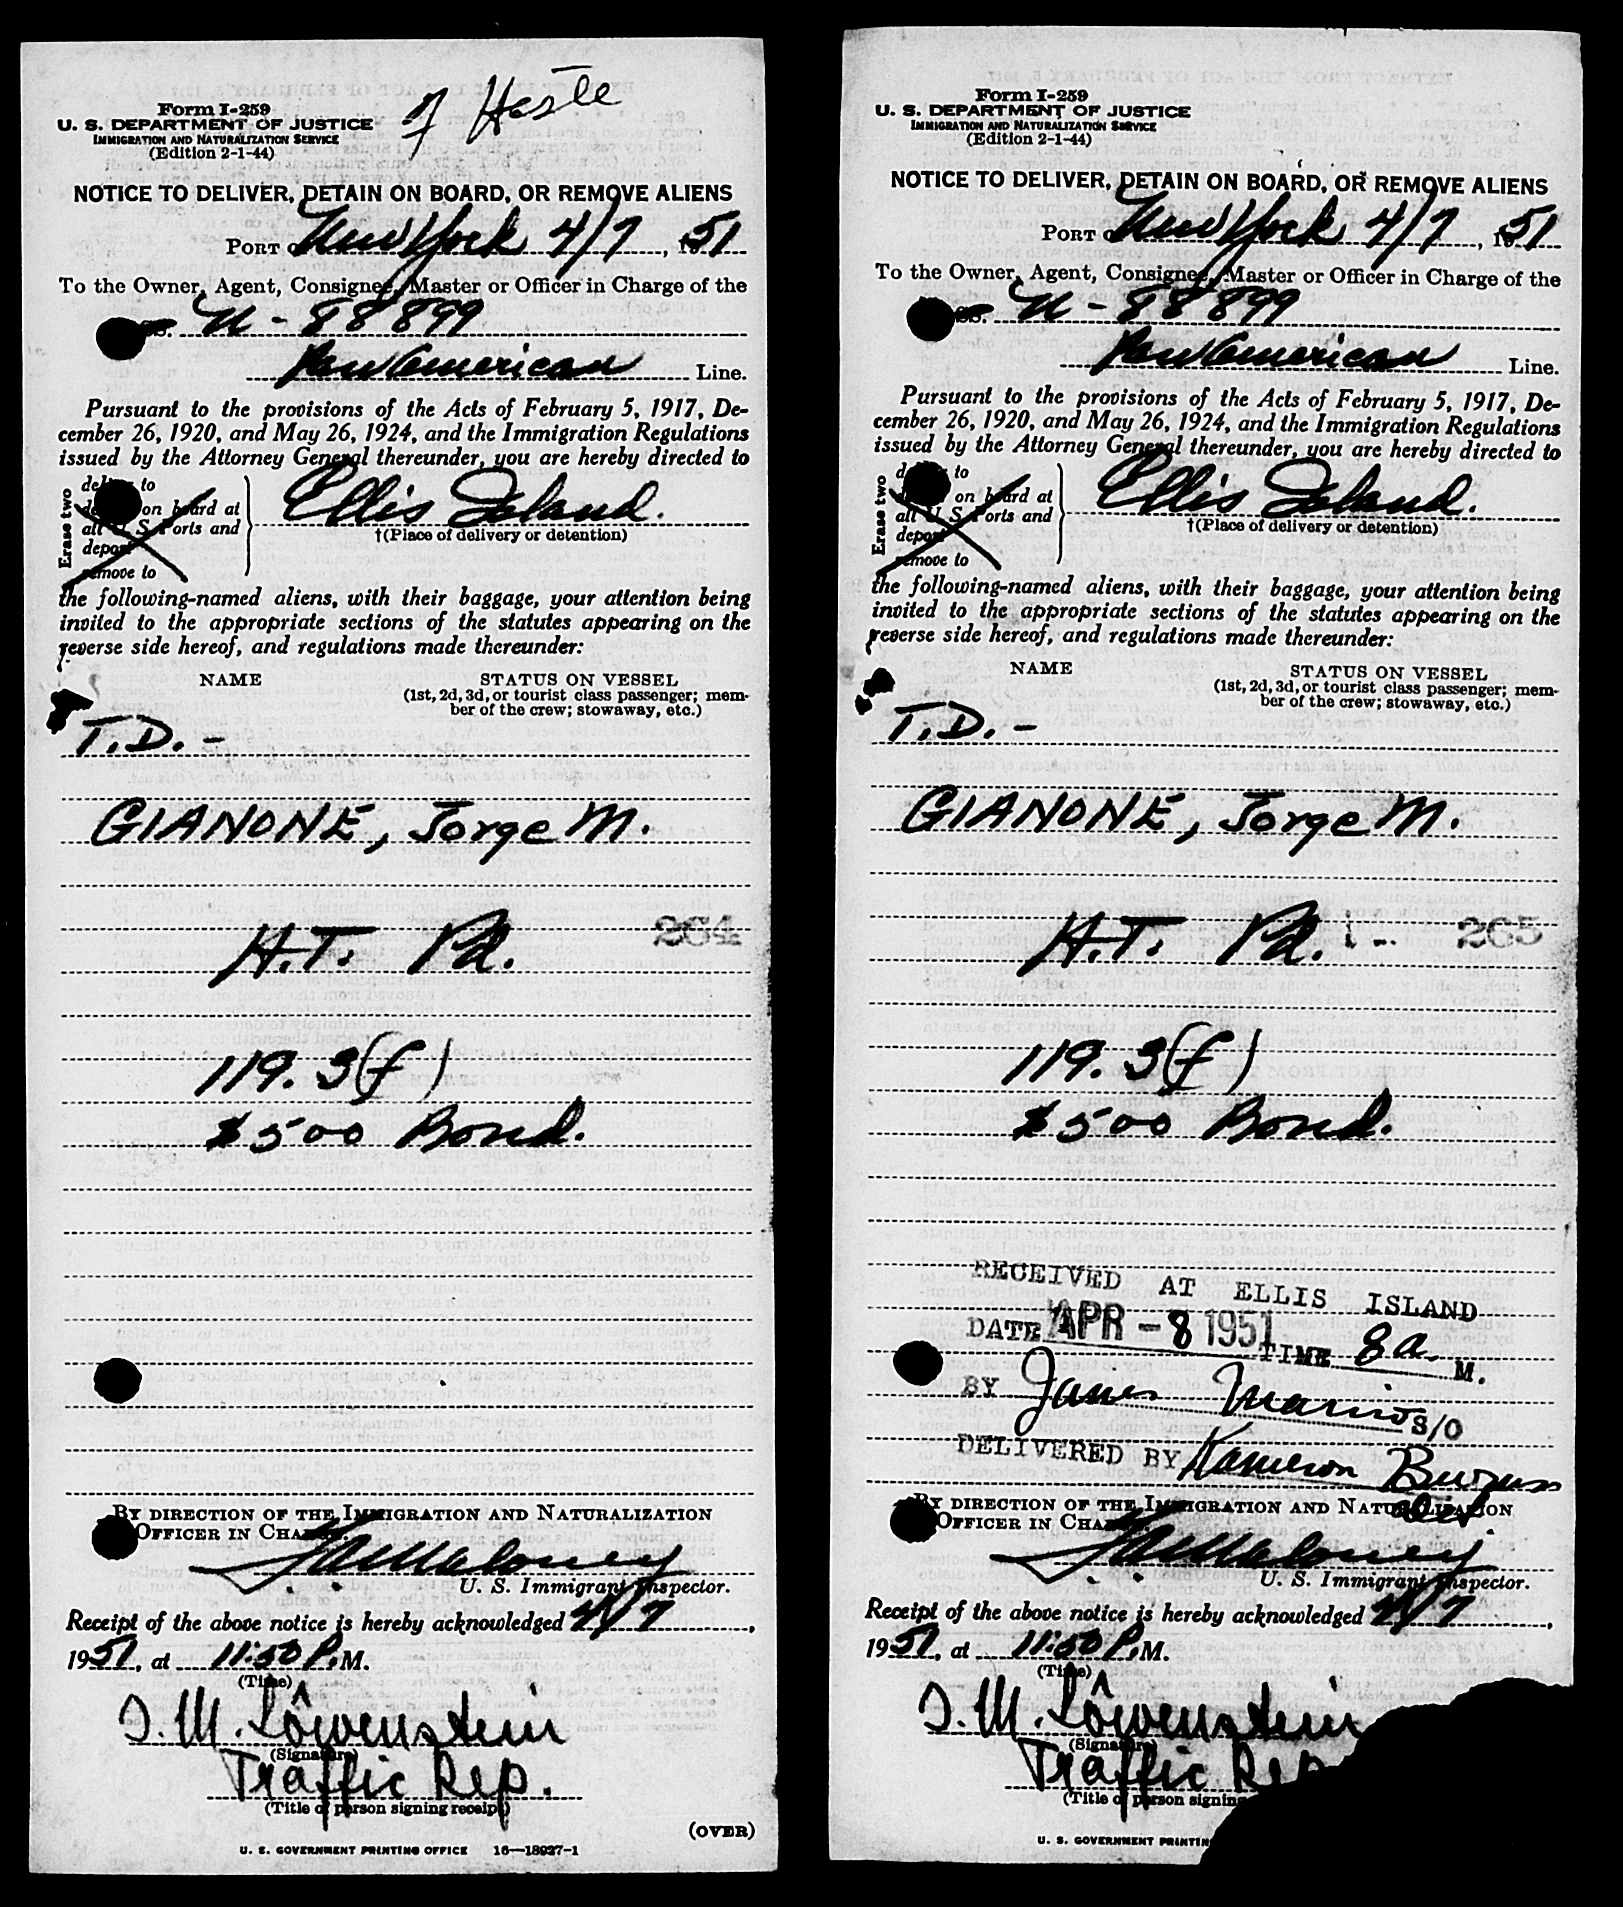 Form I-259
U. S. DEPARTMENT OF JUSTICE
IMMIGRATION AND NATURALIZATION SERVICE
(Edition 2-1-44)
NOTICE TO DELIVER, DETAIN ON BOARD, OR REMOVE ALIENS
PORT New York 4/7, 1951
To the Owner, Agent, Consignee, Master or Officer in Charge of the
N-88899
Pan American Line.
Pursuant to the provisions of the Acts of February 5, 1917, De-
cember 26, 1920, and May 26, 1924, and the Immigration Regulations
issued by the Attorney General thereunder, you are hereby directed to
Erase two
deliver to
on board at
all U. S. Ports and
deport
remove to
Ellis Island.
†(Place of delivery or detention)
the following-named aliens, with their baggage, your attention being
invited to the appropriate sections of the statutes appearing on the
reverse side hereof, and regulations made thereunder:
NAME STATUS ON VESSEL
(1st, 2d, 3d, or tourist class passenger; mem-
ber of the crew; stowaway, etc.)
T.D. -
GIANONE, Jorge M.
H.T. Pd. 264
119. 3(f)
$500 Bond.
BY DIRECTION OF THE IMMIGRATION AND NATURALIZATION
OFFICER IN CHARGE.
U. S. Immigrant Inspector.
Receipt of the above notice is hereby acknowledged 4/7,
1951, at 11:50 P.M.
(Time)
I. M. Löwenstein
(Signature)
Traffic Rep.
(Title of person signing receipt)
(OVER)
U. S. GOVERNMENT PRINTING OFFICE 16—18927-1
Form I-259
U. S. DEPARTMENT OF JUSTICE
IMMIGRATION AND NATURALIZATION SERVICE
(Edition 2-1-44)
NOTICE TO DELIVER, DETAIN ON BOARD, OR REMOVE ALIENS
PORT New York 4/7, 1951
To the Owner, Agent, Consignee, Master or Officer in Charge of the
SS. N-88899
Pan American Line.
Pursuant to the provisions of the Acts of February 5, 1917, De-
cember 26, 1920, and May 26, 1924, and the Immigration Regulations
issued by the Attorney General thereunder, you are hereby directed to
Erase two
to
on board at
all U. S. Ports and
deport
remove to
Ellis Island.
†(Place of delivery or detention)
the following-named aliens, with their baggage, your attention being
invited to the appropriate sections of the statutes appearing on the
reverse side hereof, and regulations made thereunder:
NAME STATUS ON VESSEL
(1st, 2d, 3d, or tourist class passenger; mem-
ber of the crew; stowaway, etc.)
T.D. -
GIANONE, Jorge M.
H.T. Pd. 265
119. 3(f)
$500 Bond.
RECEIVED AT ELLIS ISLAND
DATE APR -8 1951 TIME 8 a. M.
BY James Marino S/O
DELIVERED BY Kameron
BY DIRECTION OF THE IMMIGRATION AND NATURALIZATION
OFFICER IN CHARGE.
U. S. Immigrant Inspector.
Receipt of the above notice is hereby acknowledged 4/7,
1951, at 11:50 P.M.
(Time)
I. M. Löwenstein
(Signature)
Traffic Rep
(Title of person signing
U. S. GOVERNMENT PRINTIN